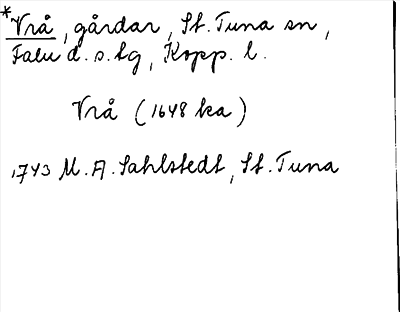 *Vrå, gårdar, St. Tuna sn,
Falu d. s. tg, Kopp. l.
Vrå (1648 ka)
1743 M. A. Sahlstedt, St. Tuna